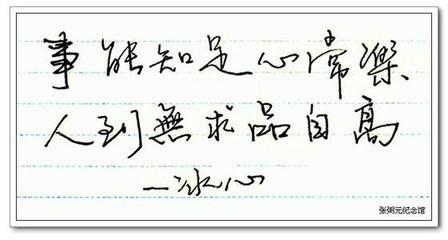 事能知足心常樂
人到無求品自高
一冰心
张闻元纪念馆